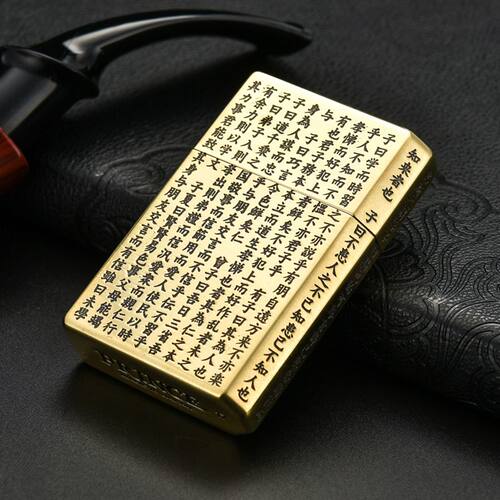 子曰學而時習之不亦說乎有朋自遠方來不亦樂
乎人不知而不慍不亦君子乎 有子曰其為人也
孝悌而好犯上者鮮矣不好犯上而好作亂者未之
有也君子務本本立而道生孝悌也者其為仁之本
與 子曰巧言令色鮮矣仁 曾子曰吾日三省吾
身為人謀而不忠乎與朋友交而不信乎傳不習乎
子曰道千乘之國敬事而信節用而愛人使民以時
子曰弟子入則孝出則悌謹而信汎愛眾而親仁行
有余力則以學文 子夏曰賢賢易色事父母能竭
其力事君能致其身與朋友交言而有信雖曰未學
知來者也 子曰不患人之不己知患己不知人也
PRINCE